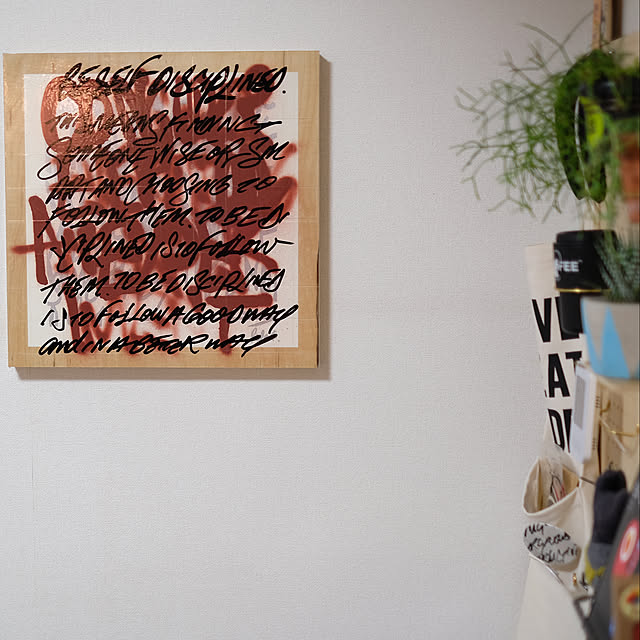 BE SELF DISCIPLINED.
FINDING
SOMEONE WISE OR SM
ART AND CHOOSING TO
FOLLOW THEM. TO BE DI
SCIPLINED IS TO FOLLOW
THEM. TO BE DISCIPLINED
IS TO FOLLOW A GOOD WAY
AND IN A BETTER WAY
FEE
VE
AT
DI
my